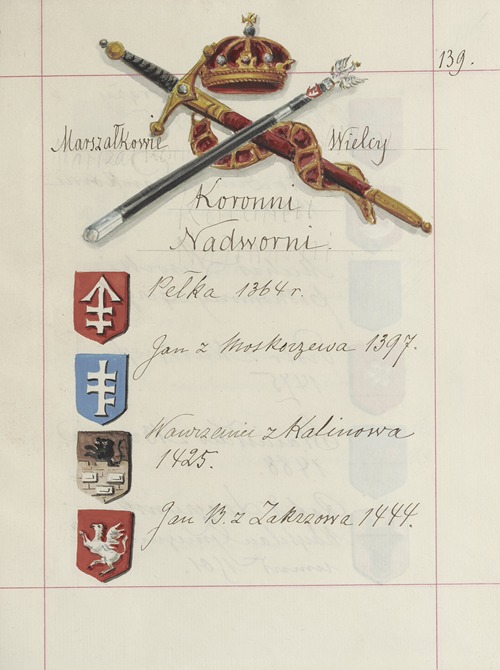 139.
Marszałkowie Wielcy
Koronni
Nadworni.
Pełka 1364 r.
Jan z Moskorzewa 1397.
Wawrzeniec z Kalinowa
1425.
Jan B. z Zakrzowa 1444.